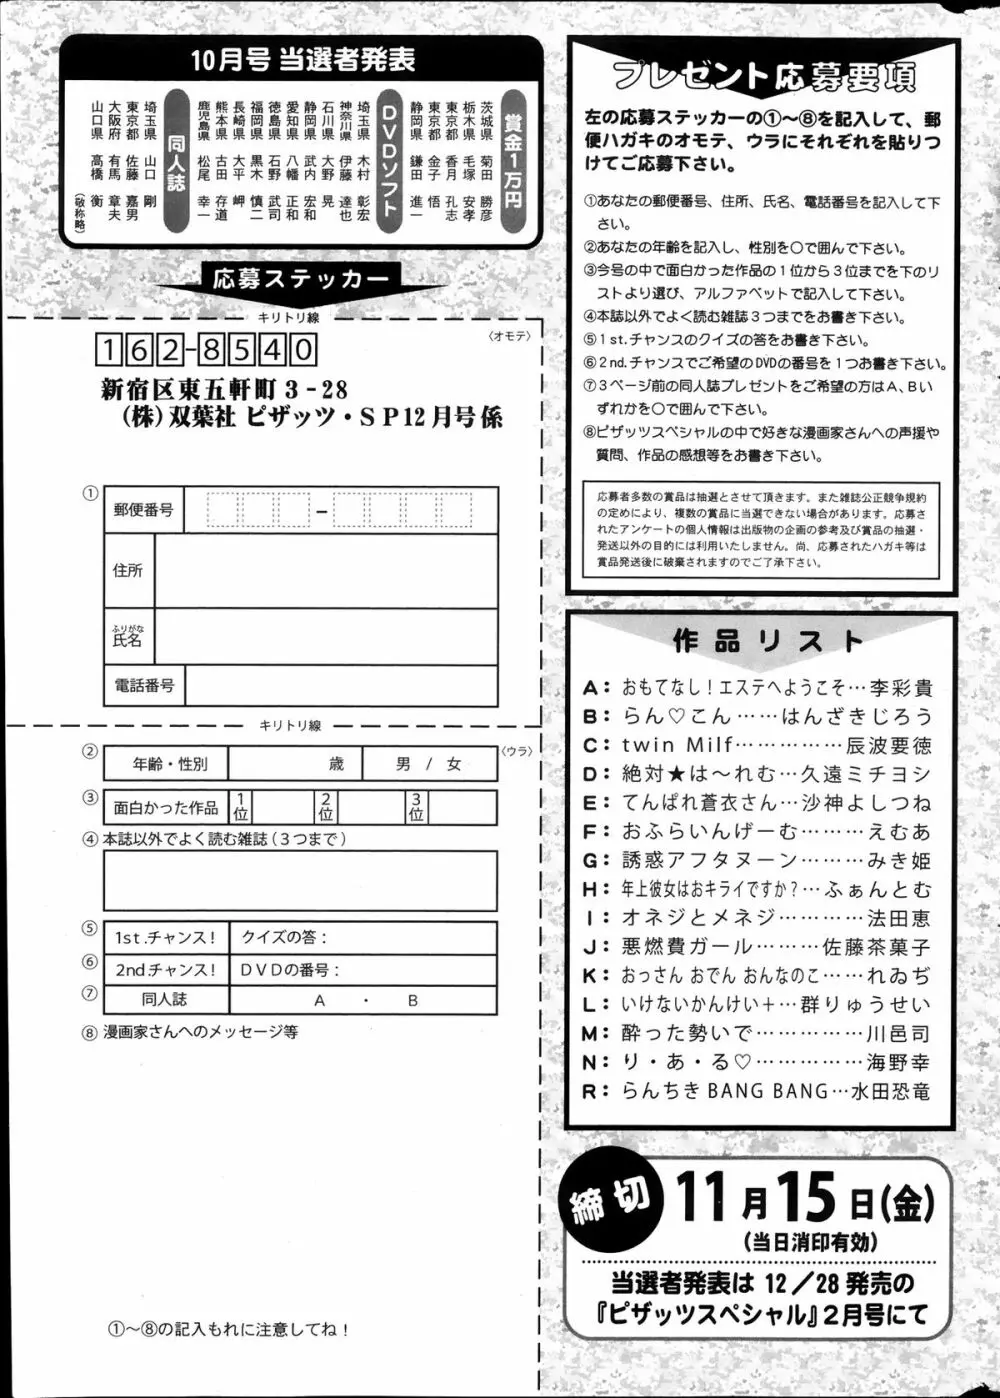 10月号 当選者発表
賞金1万円
茨城県 菊田 勝彦
栃木県 毛塚 安孝
東京都 香月 孔志
東京都 金子 悟
静岡県 鎌田 進一
DVDソフト
埼玉県 木村 彰宏
神奈川県 伊藤 達也
石川県 大野 晃
静岡県 武内 宏和
愛知県 八幡 正和
徳島県 石野 武司
福岡県 黒木 慎二
長崎県 大平 岬
熊本県 古田 存道
鹿児島県 松尾 幸一
同人誌
埼玉県 山口 剛
東京都 佐藤 嘉男
大阪府 有馬 章夫
山口県 高橋 衡
(敬称略)
応募ステッカー
キリトリ線
〈オモテ〉
162-8540
新宿区東五軒町3-28
(株)双葉社 ピザッツ・SP12月号係
①
郵便番号
住所
ふりがな
氏名
電話番号
キリトリ線
〈ウラ〉
② 年齢・性別 歳 男 / 女
③ 面白かった作品 1位 2位 3位
④ 本誌以外でよく読む雑誌(3つまで)
⑤ 1st.チャンス! クイズの答:
⑥ 2ndチャンス! DVDの番号:
⑦ 同人誌 A ・ B
⑧ 漫画家さんへのメッセージ等
①〜⑧の記入もれに注意してね!
プレゼント応募要項
左の応募ステッカーの①〜⑧を記入して、郵
便ハガキのオモテ、ウラにそれぞれを貼りつ
けてご応募下さい。
①あなたの郵便番号、住所、氏名、電話番号を記入して下
さい。
②あなたの年齢を記入し、性別を○で囲んで下さい。
③今号の中で面白かった作品の1位から3位までを下のリ
ストより選び、アルファベットで記入して下さい。
④本誌以外でよく読む雑誌3つまでをお書き下さい。
⑤1st.チャンスのクイズの答をお書き下さい。
⑥2nd.チャンスでご希望のDVDの番号を1つお書き下さい。
⑦3ページ前の同人誌プレゼントをご希望の方はA、Bい
ずれかを○で囲んで下さい。
⑧ピザッツスペシャルの中で好きな漫画家さんへの声援や
質問、作品の感想等をお書き下さい。
応募者多数の賞品は抽選とさせて頂きます。また雑誌公正競争規約
の定めにより、複数の賞品に当選できない場合があります。応募さ
れたアンケートの個人情報は出版物の企画の参考及び賞品の抽選・
発送以外の目的には利用いたしません。尚、応募されたハガキ等は
賞品発送後に破棄されますのでご了承下さい。
作品リスト
A:おもてなし!エステへようこそ…李彩貴
B:らん♡こん……はんざきじろう
C:twin Milf……………辰波要徳
D:絶対★は〜れむ…久遠ミチヨシ
E:てんぱれ蒼衣さん…沙神よしつね
F:おふらいんげーむ………えむあ
G:誘惑アフタヌーン………みき姫
H:年上彼女はおキライですか?…ふぁんとむ
I:オネジとメネジ…………法田恵
J:悪燃費ガール………佐藤茶菓子
K:おっさん おでん おんなのこ…れゐぢ
L:いけないかんけい+…群りゅうせい
M:酔った勢いで……………川邑司
N:り・あ・る♡……………海野幸
R:らんちき BANG BANG…水田恐竜
締切
11月15日(金)
(当日消印有効)
当選者発表は 12/28 発売の
『ピザッツスペシャル』2月号にて